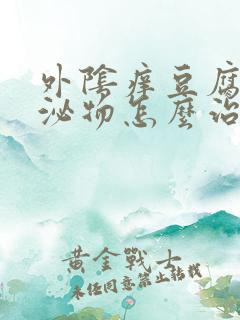 外陰痒豆腐
泌物怎麼治
黃金戰士
未经同意禁止转载